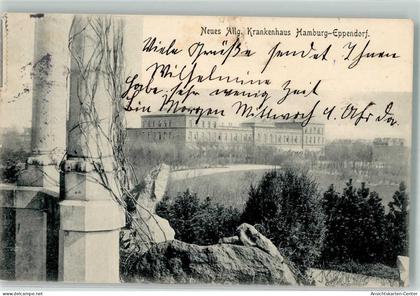 Neues Allg. Krankenhaus Hamburg-Eppendorf.
Viele Grüße sendet Ihnen
Wilhelmine
habe sehr wenig Zeit
bin Morgen Mittwoch 4 Uhr da
www.Ansichtskarten-Center.de Ansichtskarten-Center